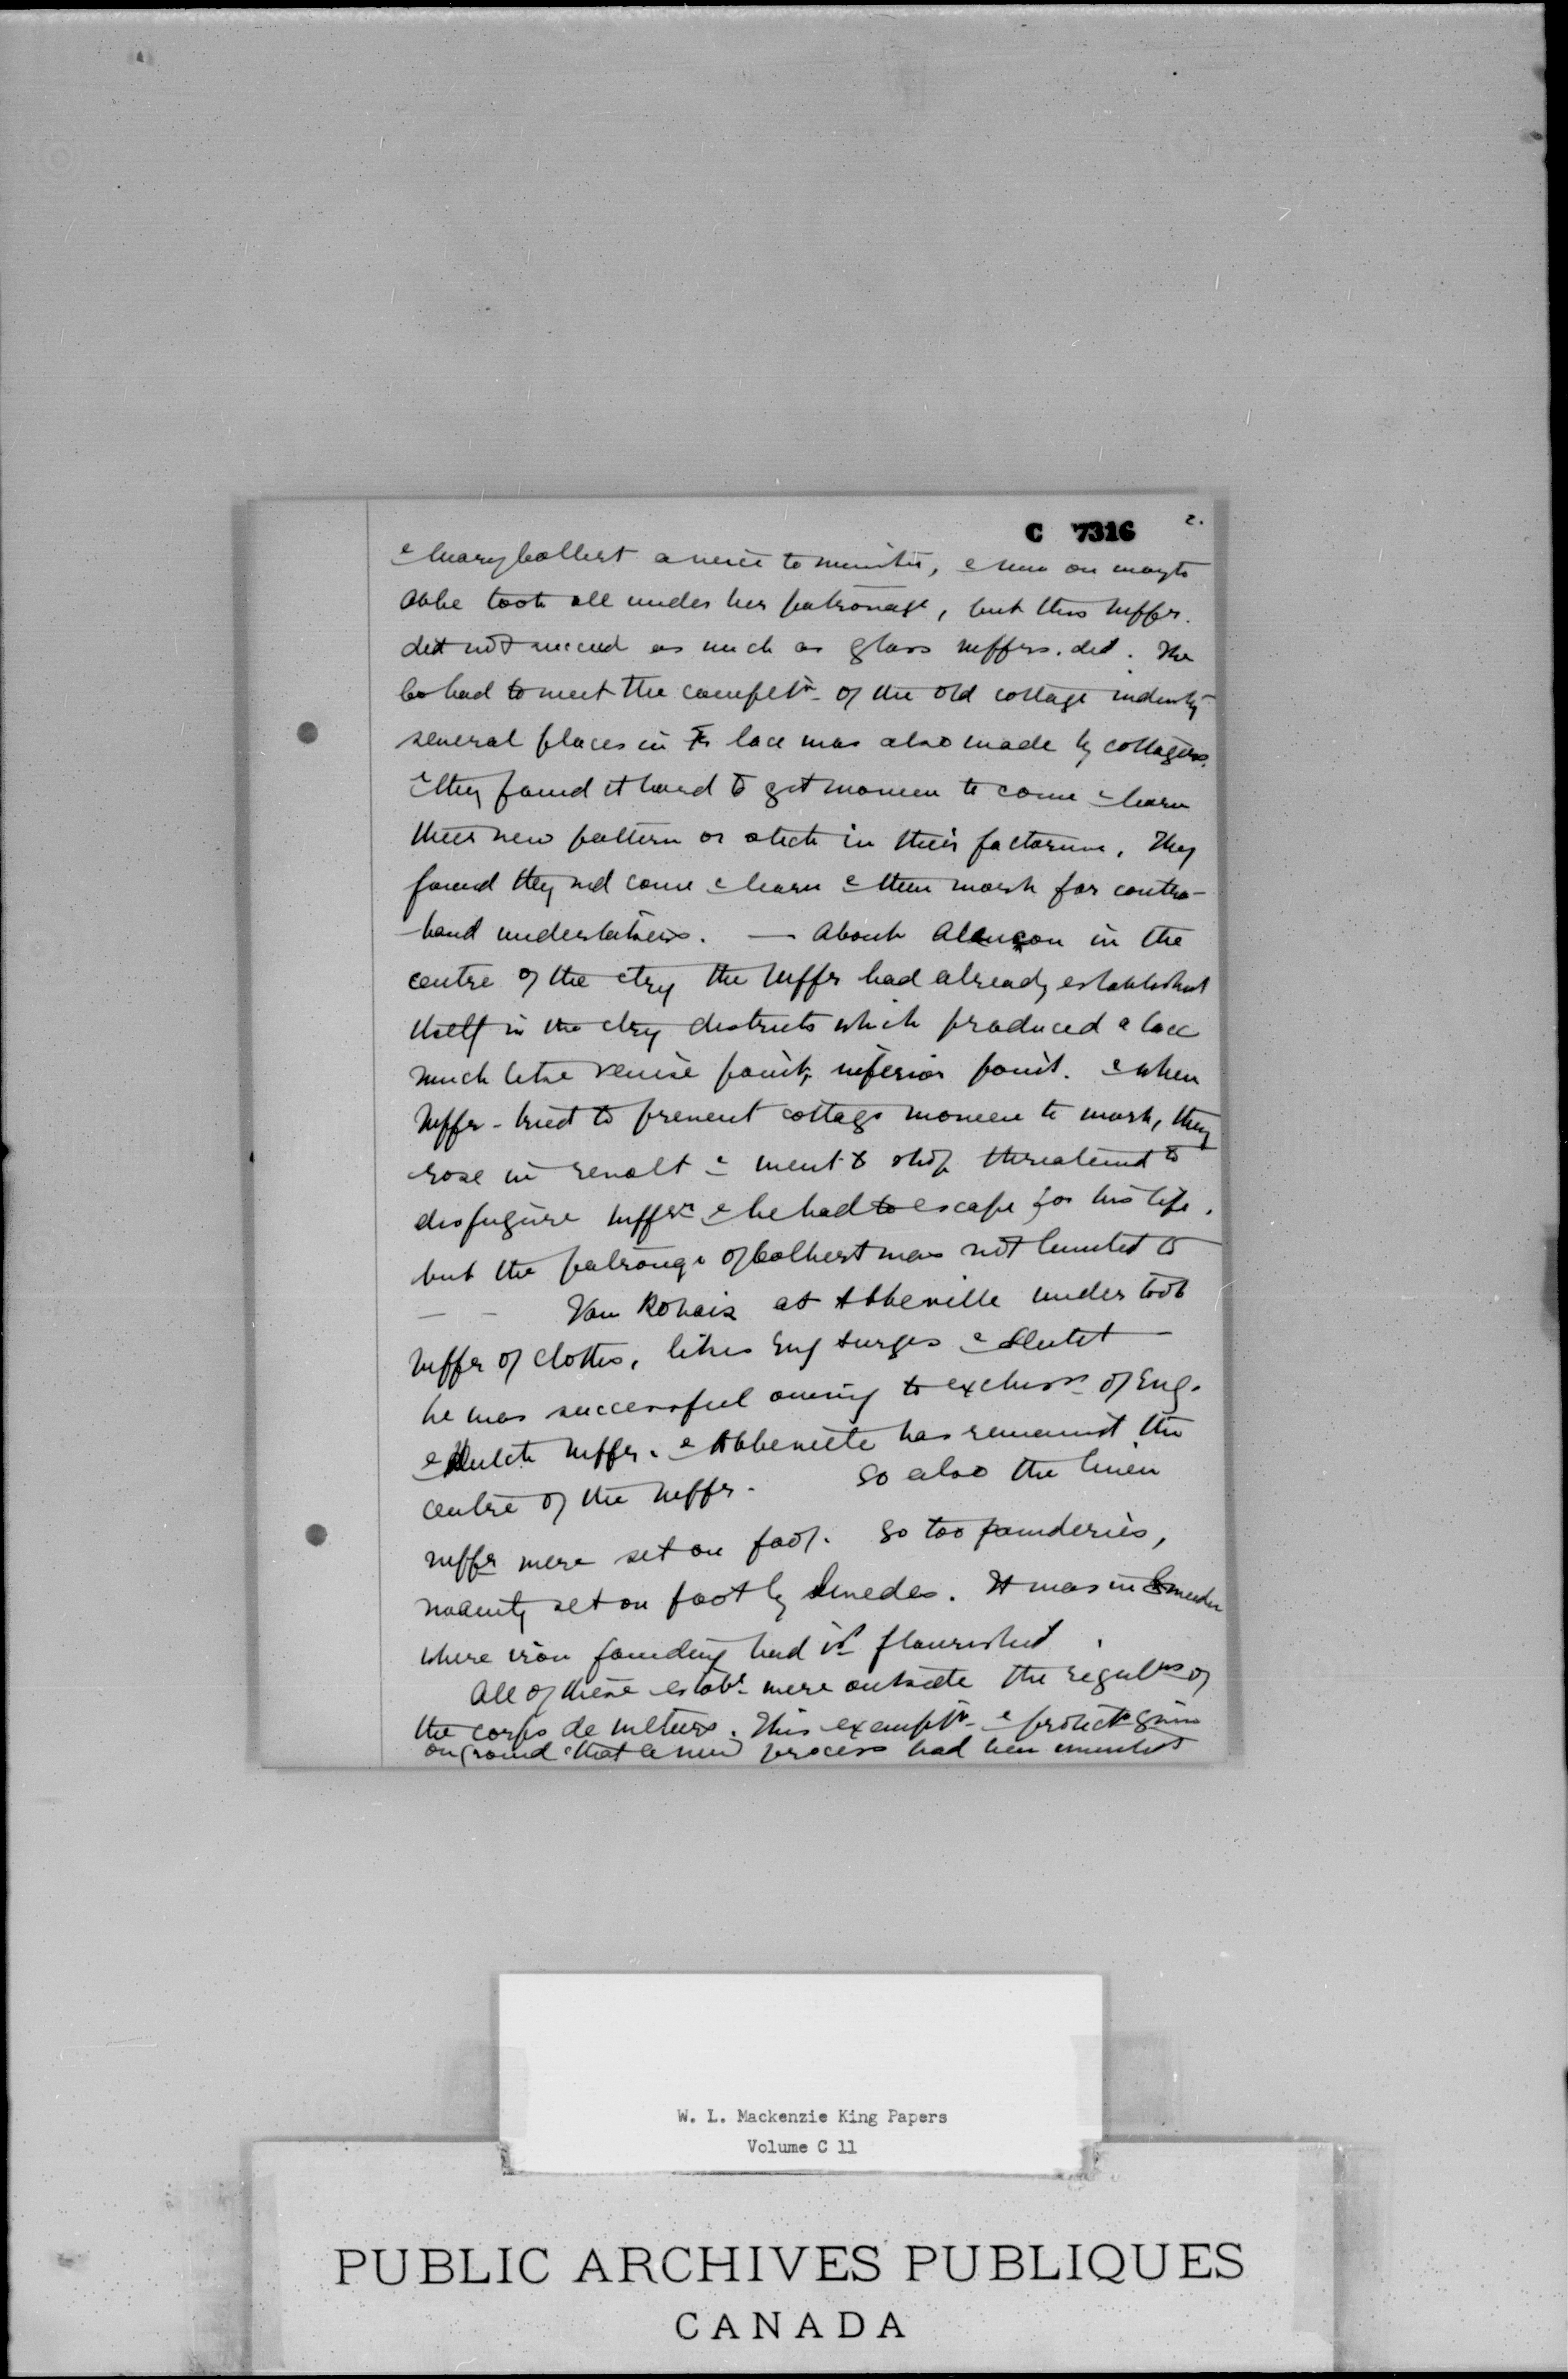 C 7316 2.
& Mary Colbert a niece to minister, &
Abbe took all under her patronage, but this mffr.
did not succeed as much as glass mffrs. did. The
Co had to meet the competn of the old cottage industry
several places in Fr lace was also made by cottagers.
& they found it hard to get women to come & learn
their new pattern or stitch in their factories. They
found they wd come & learn & then work for contra-
band undertakers. — About Alençon in the
centre of the ctry the mffr had already established
itself in the ctry districts which produced a lace
much like Venise point, inferior point. & when
mffr. tried to prevent cottage women to work, they
rose in revolt & went to shop threatened to
disfigure mffrr & he had to escape for his life.
but the patronage of Colbert was not limited to
— — Van Robais at Abbeville undertook
mffr of clothes, likes Eng surges & Dutch —
he was successful owing to exclusn of Eng.
& Dutch mffr. & Abbeville has remained the
centre of the mffr. So also the linen
mffr were set on foot. So too founderies,
set on foot by Swedes. It was in Sweden
where iron founding had 1st flourished.
All of these estabs were outside the regulns of
the corps de metiers. This exemptn & protectn given
on ground that a new process had been invented
W. L. Mackenzie King Papers
Volume C 11
PUBLIC ARCHIVES PUBLIQUES
CANADA